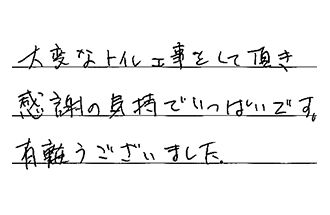 大変なトイレ工事をして頂き
感謝の気持でいっぱいです。
有難うございました.